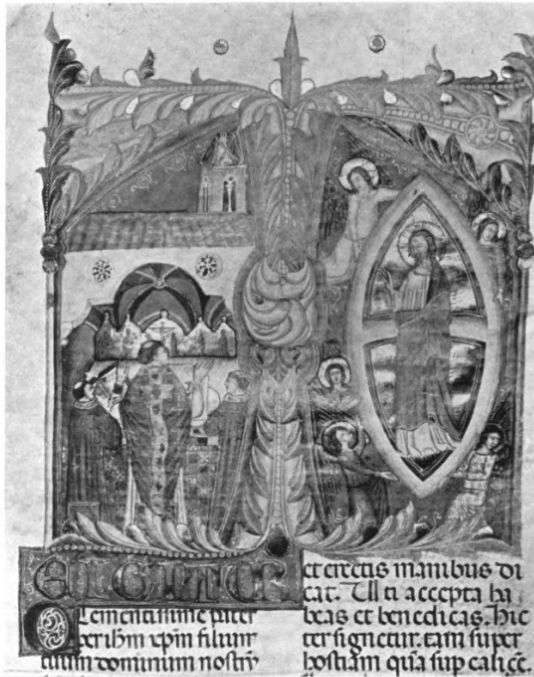 T
E IGITUR
Clementissime pater
per ihm xpm filium
tuum dominum nostrū
et erectis manibus di
cat. Uti accepta ha
beas et benedicas. hic
ter signetur. tam super
hostiam quā sup calicē.